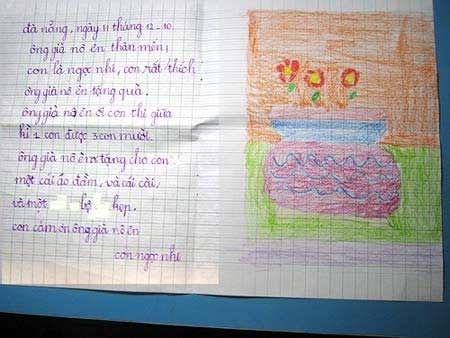 đà nẵng, ngày 11 tháng 12-10.
ông già nô en thân mến!
con là ngọc nhi, con rất thích
ông già nô en tặng quà.
ông già nô en ơi con thi giữa
kì 1 con được 3 con mười.
ông già nô en tặng cho con
một cái áo đầm, và cái cài,
và một bộ hẹp.
con cảm ơn ông già nô en
con ngọc nhi